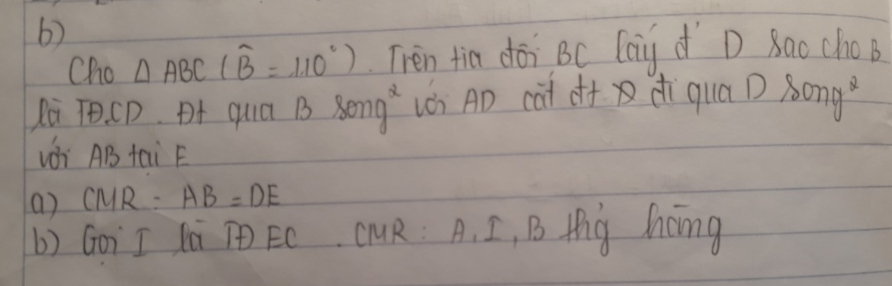 b)
Cho Δ ABC ( B̂ = 110°). Trên tia đối BC lấy đ' D sao cho B
là TĐ.CD. Đt qua B song² với AD cắt đt đi qua D song²
với AB tại E
a) CMR: AB = DE
b) Gọi I là TĐ EC. CMR: A, I, B thg hàng